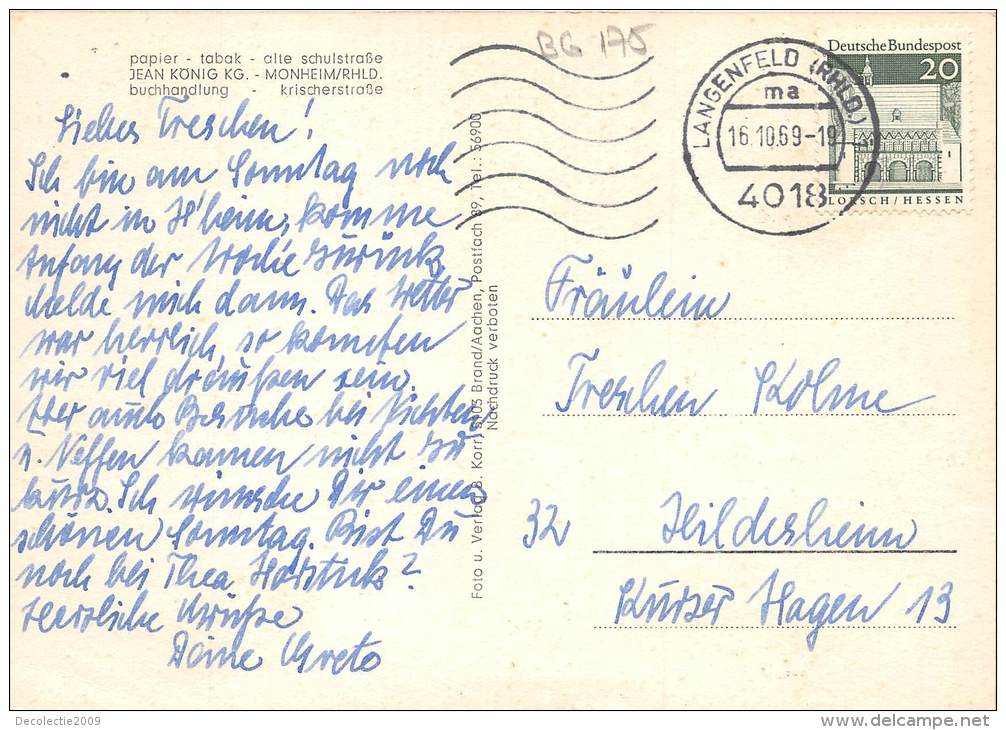 BG 175
papier - tabak - alte schulstraße
JEAN KÖNIG KG. - MONHEIM/RHLD.
buchhandlung - krischerstraße
LANGENFELD (RHLD.)
ma
16.10.69-19
4018
Deutsche Bundespost
20
LORSCH / HESSEN
Liebes Treschen!
Ich bin am Sonntag noch
nicht in H'heim, komme
Anfang der Woche zurück,
melde mich dann. Das Wetter
war herrlich, so konnten
wir viel draußen sein.
Aber auch Besuche bei Nichten
u. Neffen kamen nicht zu
kurz. Ich wünsche Dir einen
schönen Sonntag. Bist Du
noch bei Thea
Herzliche Grüße
Deine Greto
Foto u. Verlag B. Korr, 5903 Brand/Aachen, Postfach 89, Tel.: 56900
Nachdruck verboten
Fräulein
Treschen Kolme
32 Hildesheim
Kurzer Hagen 13
Decolectie2009
www.delcampe.net